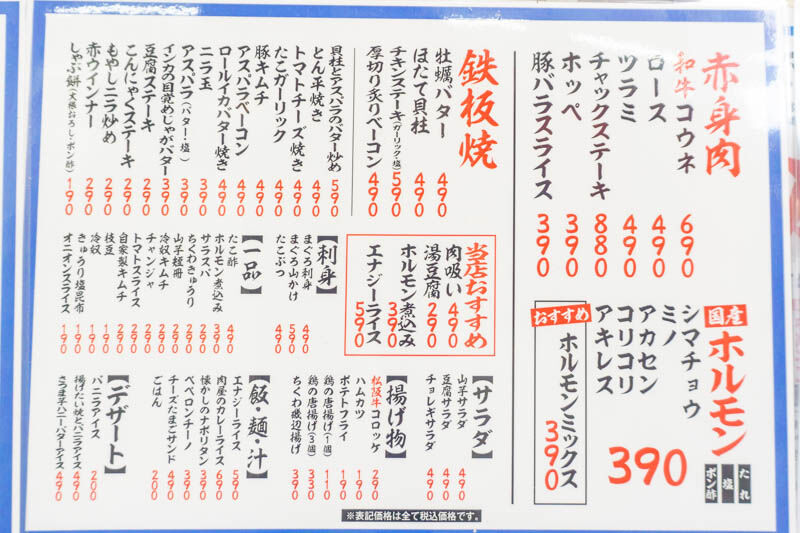 赤身肉
和牛コウネ 690
ロース 490
ツラミ 490
チャックステーキ 880
ホッペ 390
豚バラスライス 390
国産ホルモン
たれ
塩
ポン酢
シマチョウ
ミノ
アカセン
コリコリ
アキレス
390
おすすめ
ホルモンミックス 390
鉄板焼
牡蠣バター 490
ほたて貝柱 490
チキンステーキ(ガーリック・塩) 590
厚切り炙りベーコン 490
貝柱とアスパラのバター炒め 590
とん平焼き 490
トマトチーズ焼き 490
たこガーリック 490
豚キムチ 490
アスパラベーコン 490
ロールイカバター焼き 490
ニラ玉 390
アスパラ(バター・塩) 390
インカの目覚めじゃがバター 390
豆腐ステーキ 290
こんにゃくステーキ 290
もやしニラ炒め 290
赤ウインナー 290
しゃぶ餅(大根おろし・ポン酢) 190
当店おすすめ
肉吸い 490
湯豆腐 290
ホルモン煮込み 390
エナジーライス 590
【刺身】
まぐろ刺身 490
まぐろ山かけ 590
たこぶつ 490
【一品】
たこ酢 490
ホルモン煮込み 390
サラスパ 290
ちくわきゅうり 290
山芋短冊 290
冷奴キムチ 290
チャンジャ 290
トマトスライス 290
自家製キムチ 290
枝豆 190
冷奴 190
きゅうり塩昆布 190
オニオンスライス 190
【サラダ】
山芋サラダ 490
豆腐サラダ 490
チョレギサラダ 490
【揚げ物】
松阪牛コロッケ 290
ハムカツ 190
ポテトフライ 190
鶏の唐揚げ(1個) 110
鶏の唐揚げ(3個) 330
ちくわ磯辺揚げ 390
【飯・麺・汁】
エナジーライス 590
肉屋のカレーライス 690
懐かしのナポリタン 590
ペペロンチーノ 390
チーズたまごサンド 490
ごはん 200
【デザート】
バニラアイス 200
揚げたい焼とバニラアイス 490
さつま芋ハニーバターアイス 490
※表記価格は全て税込価格です。